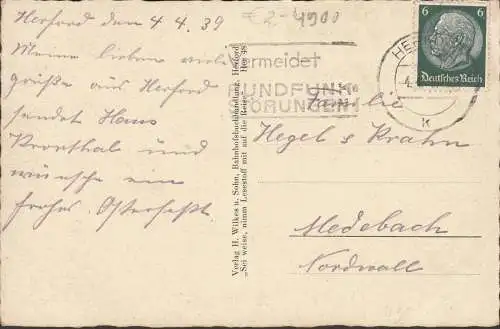 Herford den 4 4. 39
Meine lieben viele
grüße aus Herford
sendet Hans
Kronthal und
wünsche ein
frohes Osterfest.
€ 2- 4900
ermeidet
UNDFUNK
STÖRUNGEN
K
6 6
Deutsches Reich
HE
Verlag H. Wilkes u. Sohn, Bahnhofsbuchhandlung, Herford
„Sei weise, nimm Lesestoff mit auf die Reise"
Familie
Hegel s Krahn
Medebach
Nordwall